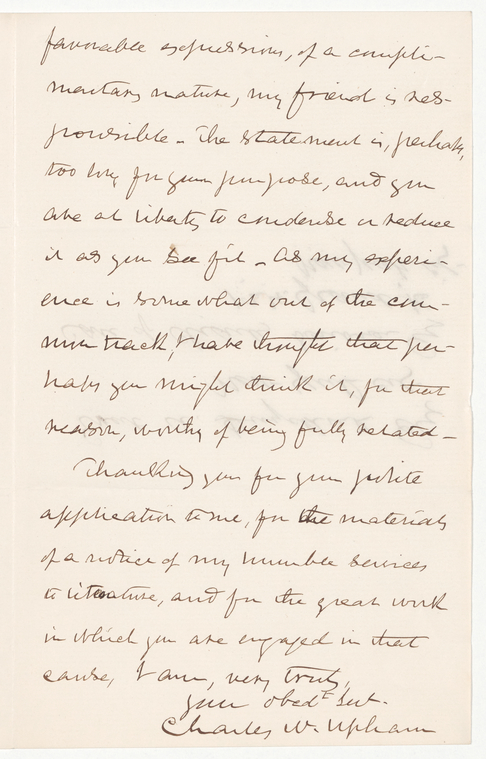 favorable expressions, of a compli-
mentary nature, my friend is res-
ponsible - The statement is, perhaps,
too long for your purpose, and you
are at liberty to condense or reduce
it as you see fit - As my experi-
ence is somewhat out of the com-
mon track, I have thought that per-
haps you might think it, for that
reason, worthy of being fully related -
Thanking you for your polite
application to me, for the materials
of a notice of my humble services
to literature, and for the great work
in which you are engaged in that
cause, I am, very truly,
your obedt Svt.
Charles W. Upham